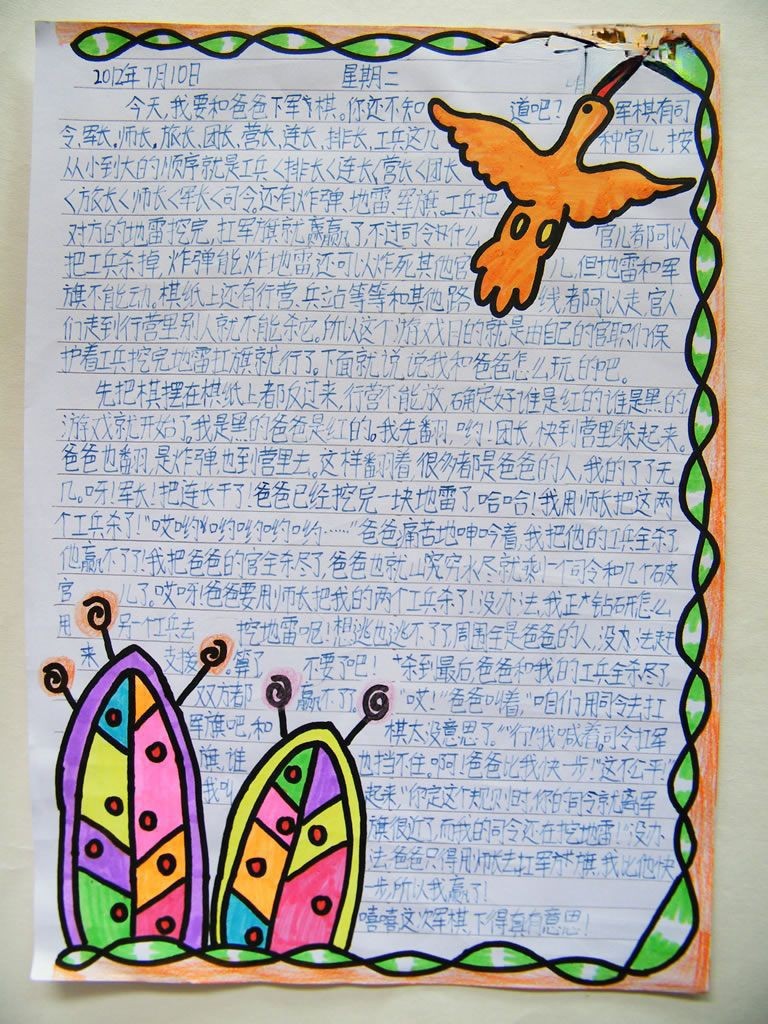 2012年7月10日 星期二 晴
今天,我要和爸爸下军棋。你还不知道吧?军棋有司
令,军长,师长,旅长,团长,营长,连长,排长,工兵这几种官儿,按
从小到大的顺序就是工兵<排长<连长<营长<团长
<旅长<师长<军长<司令,还有炸弹,地雷,军旗。工兵把
对方的地雷挖完,扛军旗就赢了,不过司令和什么官儿都可以
把工兵杀掉,炸弹能炸地雷还可以炸死其他官儿,但地雷和军
旗不能动,棋纸上还有行营,兵站等等和其他路线都可以走,官儿
们走到行营里别人就不能杀它。所以这个游戏目的就是由自己的官职们保
护着工兵挖完地雷扛旗就行了。下面就说说我和爸爸怎么玩的吧。
先把棋摆在棋纸上都反过来,行营不能放,确定好谁是红的谁是黑的
游戏就开始了。我是黑的爸爸是红的。我先翻,哟!团长,快到营里躲起来。
爸爸也翻,是炸弹也到营里去。这样翻着很多都是爸爸的人,我的了了无
几。呀!军长!把连长干了!爸爸已经挖完一块地雷了,哈哈!我用师长把这两
个工兵杀了!"哎哟哟哟哟哟哟……"爸爸痛苦地呻吟着,我把他的工兵全杀了,
他赢不了了!我把爸爸的官全杀尽了,爸爸也就山穷水尽就剩下一个司令和几个破
官儿了。哎呀!爸爸要用师长把我的两个工兵杀了!没办法,我正钻研怎么
用另一个工兵去挖地雷呢!想逃也逃不了了周围全是爸爸的人,没办法赶
来支援。算了不要了吧!杀到最后,爸爸和我的工兵全杀尽了,
双方都赢不了。"哎!"爸爸叫着,"咱们用司令去扛
军旗吧,和棋太没意思了。""行!"我喊着。司令扛军
旗,谁也挡不住。啊!爸爸比我快一步!"这不公平!"
我叫起来"你定这个规则时,你的司令就离军
旗很近了,而我的司令还在挖地雷!"没办
法,爸爸只得用师长去扛军旗,我比他快
一步,所以我赢了!
嘻嘻这次军棋,下得真有意思!